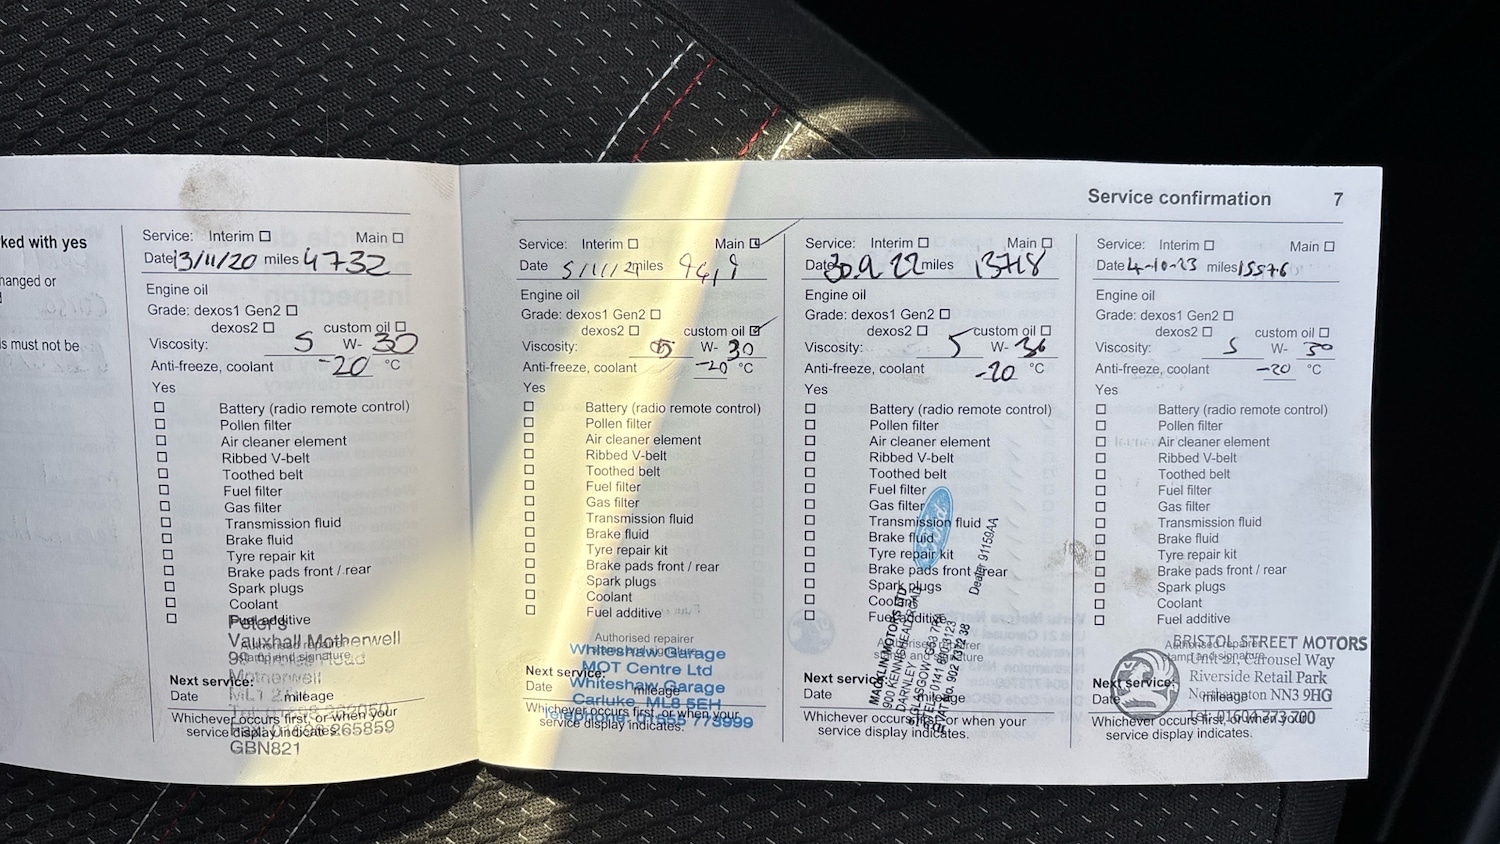 ked with yes
hanged or
s must not be
Service: Interim Main
Date 13/11/20 miles 4732
Engine oil
Grade: dexos1 Gen2
dexos2 custom oil
Viscosity: 5 W- 30
Anti-freeze, coolant -20 °C
Yes
Battery (radio remote control)
Pollen filter
Air cleaner element
Ribbed V-belt
Toothed belt
Fuel filter
Gas filter
Transmission fluid
Brake fluid
Tyre repair kit
Brake pads front / rear
Spark plugs
Coolant
Fuel additive
Peters
Vauxhall Motherwell
Authorised repairer
stamp and signature
Motherwell
Next service:
Date mileage
Whichever occurs first, or when your
service display indicates.
265859
GBN821
Service confirmation 7
Service: Interim Main
Date 5/11/21 miles
Engine oil
Grade: dexos1 Gen2
dexos2 custom oil
Viscosity: 5 W- 30
Anti-freeze, coolant -20 °C
Yes
Battery (radio remote control)
Pollen filter
Air cleaner element
Ribbed V-belt
Toothed belt
Fuel filter
Gas filter
Transmission fluid
Brake fluid
Tyre repair kit
Brake pads front / rear
Spark plugs
Coolant
Fuel additive
Authorised repairer
stamp and signature
Whiteshaw Garage
MOT Centre Ltd
Whiteshaw Garage
Carluke, ML8 5EH
Telephone: 01555 773999
Next service:
Date mileage
Whichever occurs first, or when your
service display indicates.
Service: Interim Main
Date 30.9.22 miles 13718
Engine oil
Grade: dexos1 Gen2
dexos2 custom oil
Viscosity: 5 W- 30
Anti-freeze, coolant -20 °C
Yes
Battery (radio remote control)
Pollen filter
Air cleaner element
Ribbed V-belt
Toothed belt
Fuel filter
Gas filter
Transmission fluid
Brake fluid
Tyre repair kit
Brake pads front / rear
Spark plugs
Coolant
Fuel additive
Ford
Dealer 91159AA
MACKLIN MOTORS LTD
900 KENNISHEAD ROAD
DARNLEY
GLASGOW G53 7RA
Authorised repairer
stamp and signature
Next service:
Date mileage
Whichever occurs first, or when your
service display indicates.
Service: Interim Main
Date 4-10-23 miles 15576
Engine oil
Grade: dexos1 Gen2
dexos2 custom oil
Viscosity: 5 W- 30
Anti-freeze, coolant -20 °C
Yes
Battery (radio remote control)
Pollen filter
Air cleaner element
Ribbed V-belt
Toothed belt
Fuel filter
Gas filter
Transmission fluid
Brake fluid
Tyre repair kit
Brake pads front / rear
Spark plugs
Coolant
Fuel additive
BRISTOL STREET MOTORS
Authorised repairer
stamp and signature
Unit 21 Carousel Way
Riverside Retail Park
Northampton NN3 9HG
Tel: 01604 773 700
Next service:
Date mileage
Whichever occurs first, or when your
service display indicates.